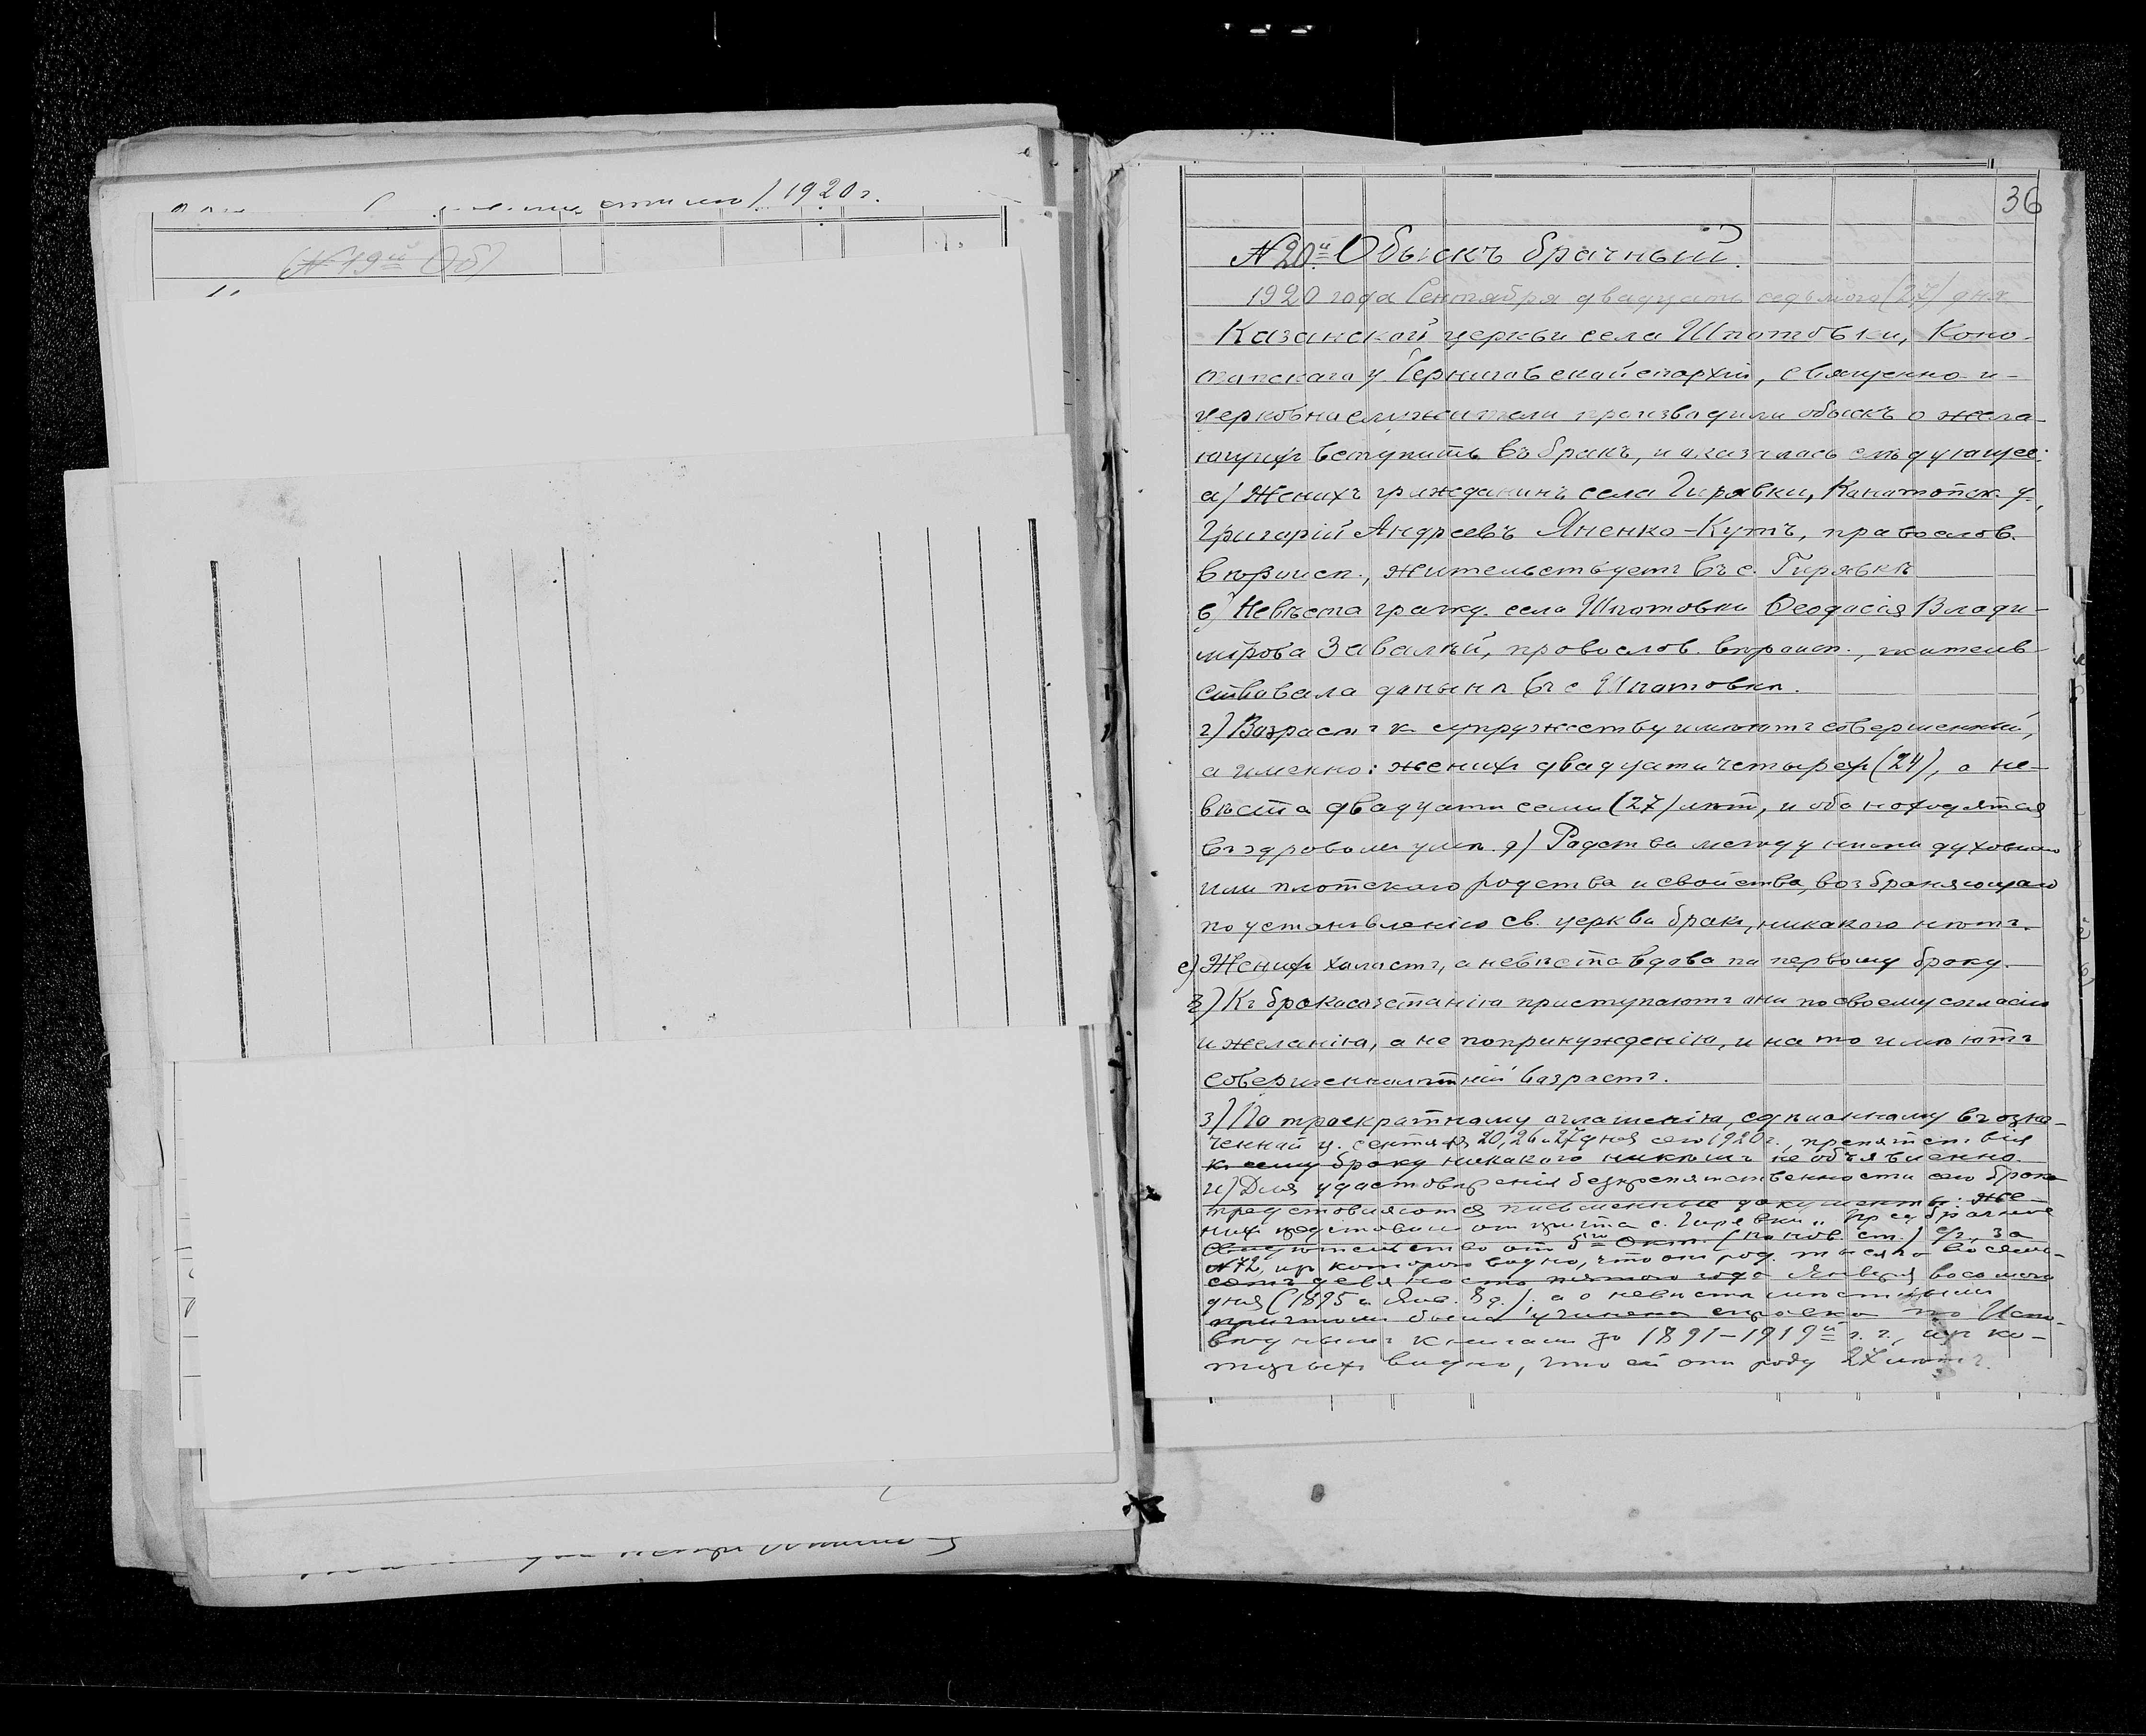 стилю) 1920 г.
(№ 19й Об)
36
№ 20й Обыскъ брачный.
1920 года Сентября двадцать седьмого (27) дня
Казанской церкви села Шпотовки, Коно-
топскаго у. Черниговской епархіи, священно и-
церковнослужители производили обыскъ о жела-
ющихъ вступить въ бракъ, и оказалось слѣдующее:
а) Женихъ гражданинъ села Гирявки, Конотопск. у.,
Григорій Андреевъ Яненко-Кутъ, православ.
вѣроисп., жительствуетъ въ с. Гирявкѣ
в) Невѣста гражд. села Шпотовки Ѳеодосія Влади-
мірова Завалѣй, православ. вѣроисп., житель-
ствовала донынѣ въ с Шпотовкѣ.
г) Возрастъ къ супружеству имѣютъ совершенный,
а именно: женихъ двадцати четырехъ (24), а не-
вѣста двадцати семи (27) лѣтъ, и оба находятся
въ здравомъ умѣ. д) Родства между ними духовнаго
или плотскаго родства и свойства, возбраняющаго
по установленію св. церкви бракъ, никакого нѣтъ.
е) Женихъ холостъ, а невѣста вдова по первому браку.
ж) Къ бракосочетанію приступаютъ они по своему согласію
и желанію, а не по принужденію, и на то имѣютъ
совершеннолѣтній возрастъ.
з) По троекратному оглашенію, сдѣланному въ озна-
ченной ц. сентября 20, 26 и 27 дня сего 1920 г., препятствія
къ сему браку никакого никѣмъ не объявленно.
и) Для удостовѣренія безпрепятственности сего брака
представляются письменные документы: же-
нихъ представилъ отъ причта с. Гирявки „Предбрачное
свидѣтельство отъ 5го Окт. (по нов. ст.) с/г., за
№ 72, изъ котораго видно, что онъ род. тысяча восемь-
сотъ девяносто пятого года Января восьмого
дня (1895 г. Янв. 8 д.). а о невѣстѣ мѣстнымъ
причтомъ была учинена справка по Испо-
вѣднымъ книгамъ за 1891-1919й г.г., изъ ко-
торыхъ видно, что ей отъ роду 27 лѣтъ.